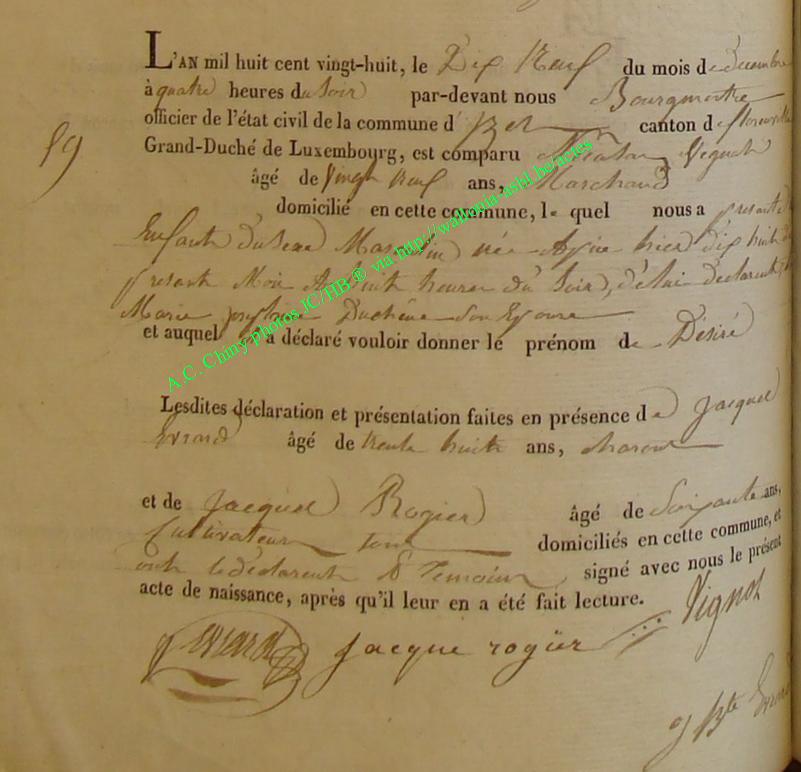 L'AN mil huit cent vingt-huit, le Dix Neuf du mois de Decembre
à quatre heures du Soir par-devant nous Bourgmestre
officier de l'état civil de la commune d' canton de florenville
59
Grand-Duché de Luxembourg, est comparu
âgé de Vingt Neuf ans, Marchand
domicilié en cette commune, le quel nous a presenté
Enfant du Sexe Masculin née hier dix huit du
present Mois heures du Soir, de lui declarant
Marie Duchêne Son Epouse
et auquel a déclaré vouloir donner le prénom de Désiré
Lesdites déclaration et présentation faites en présence de Jacques
Evrard âgé de trente huit ans,
et de Jacques Rogier âgé de Soixante ans,
Cultivateur tous domiciliés en cette commune, et
ont le declarant & Temoins signé avec nous le présent
acte de naissance, après qu'il leur en a été fait lecture.
Vignot
J Evrard Jacque rogier
J Bte Evrard
A.C. Chiny photos JC/HB ® via http://wallonia-asbl.be/actes